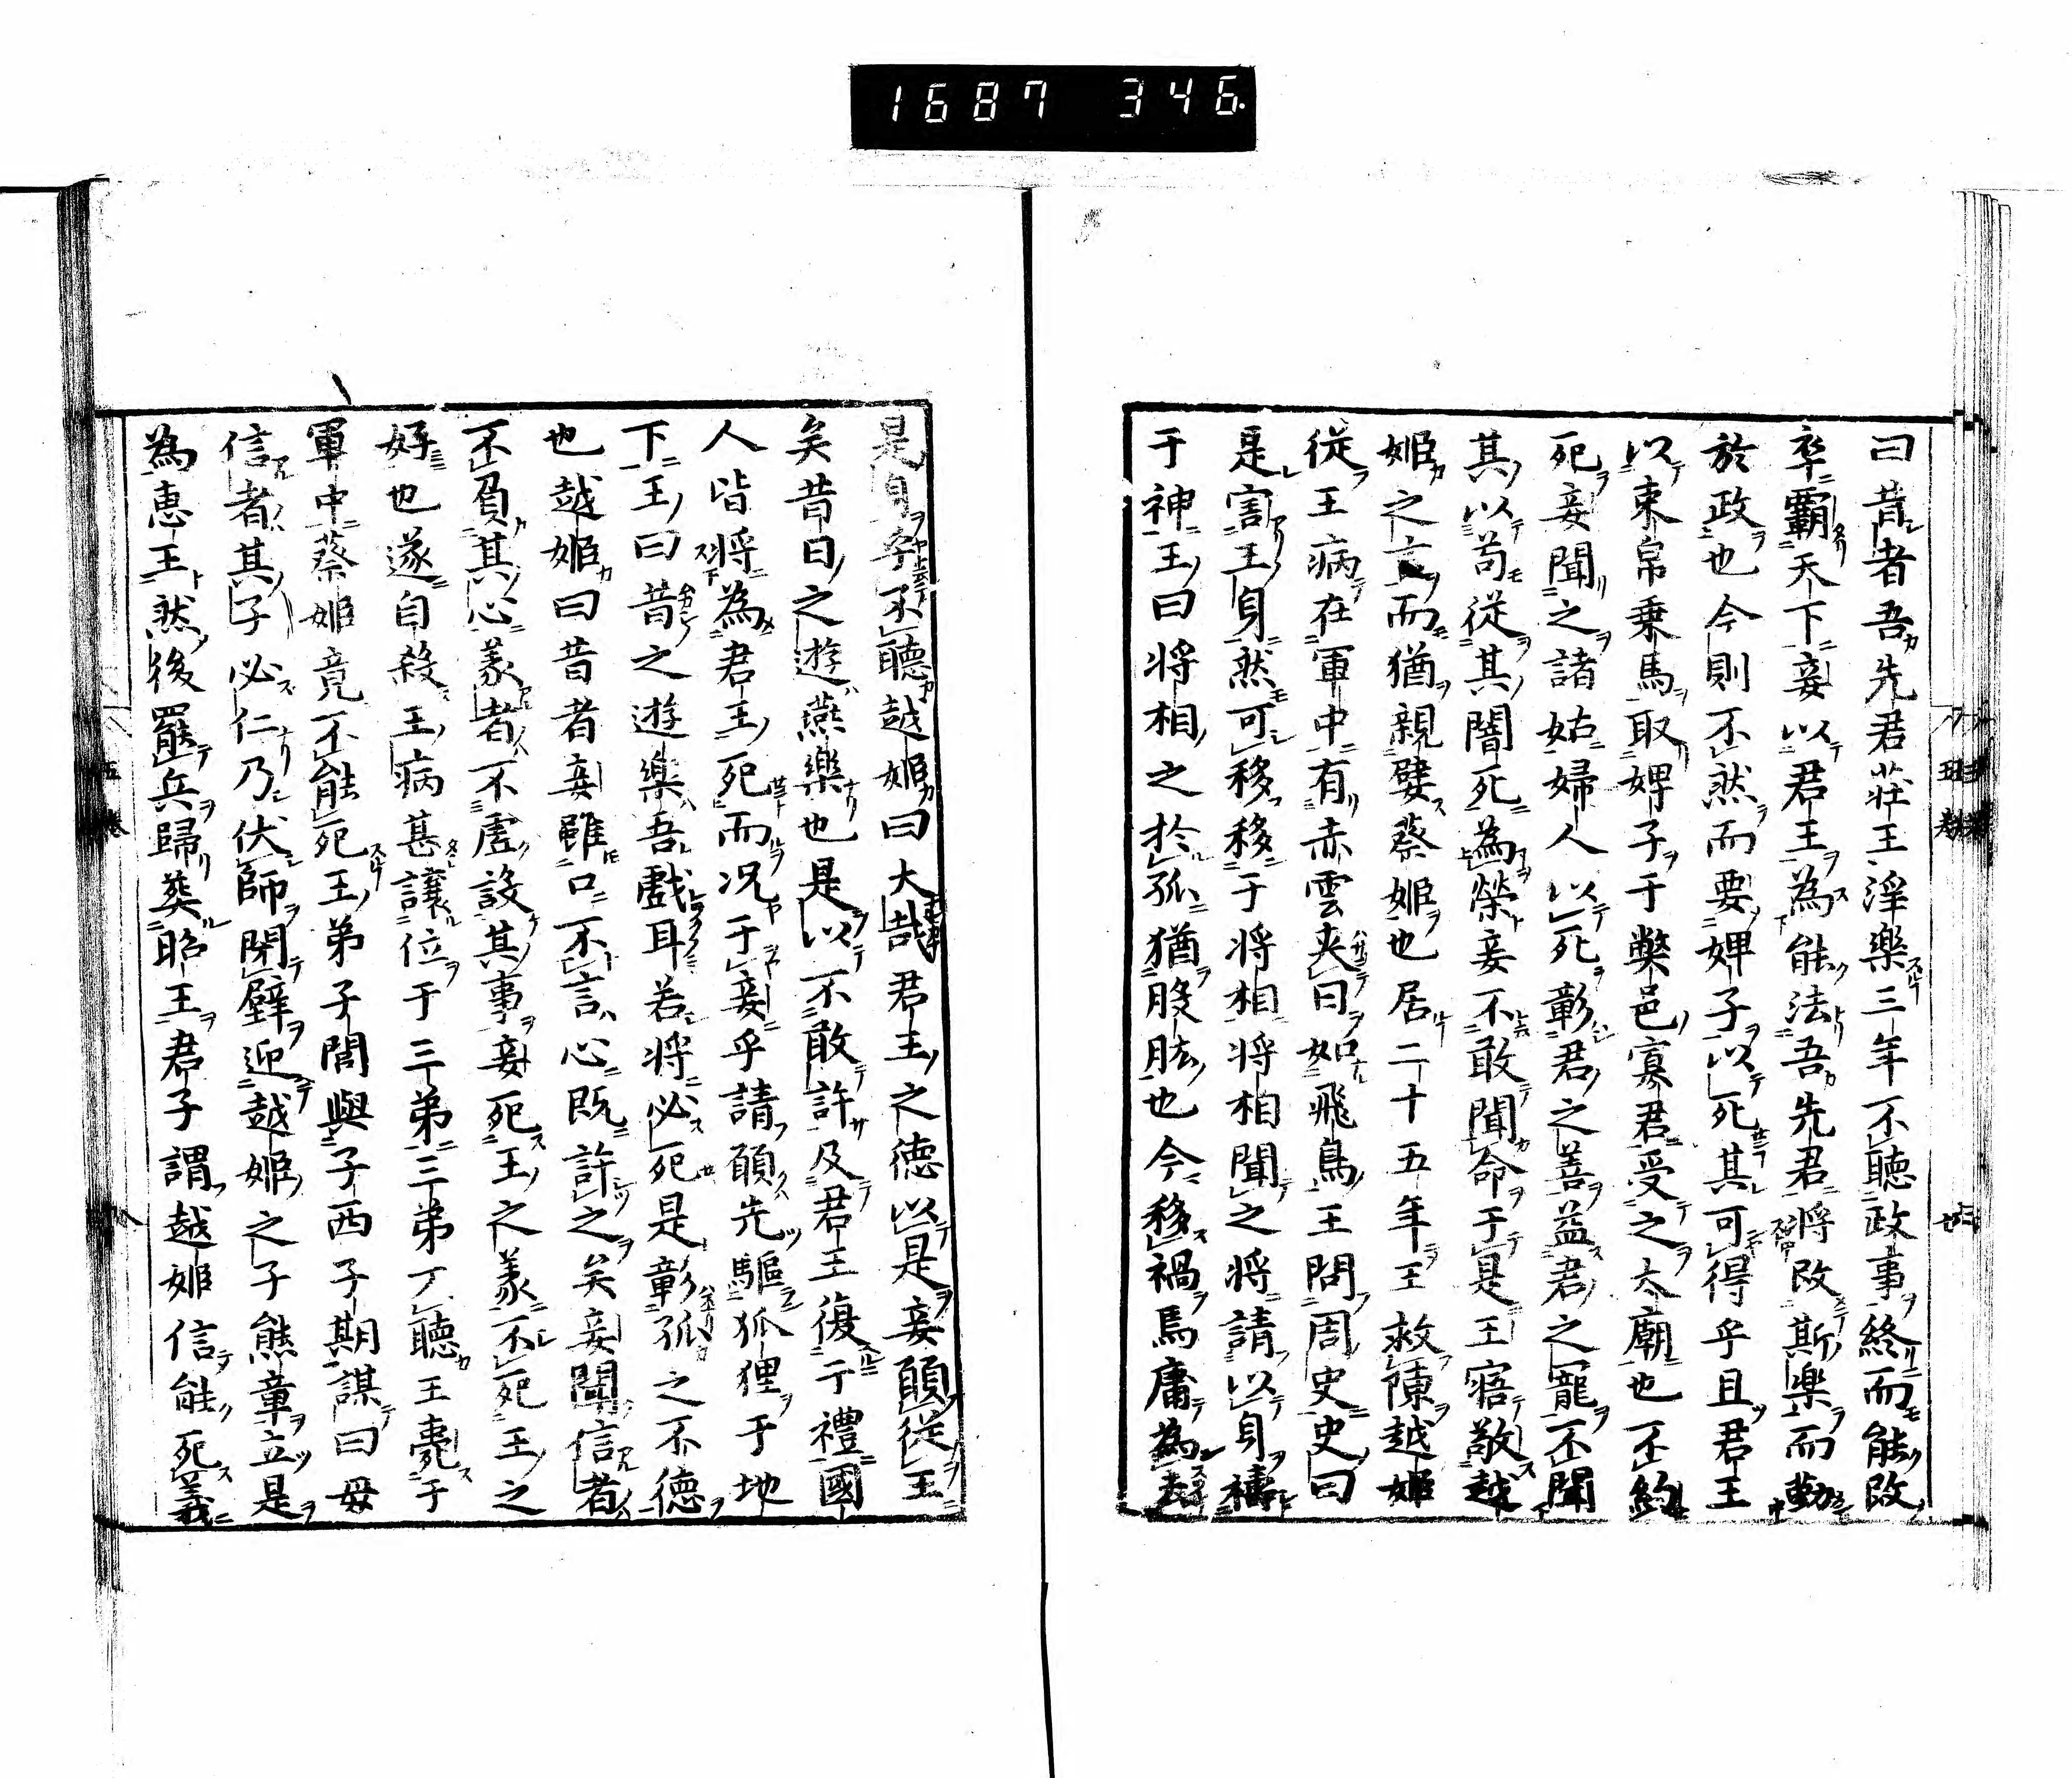 1687 346.
曰昔者吾先君莊王淫樂三年不聽政事終而能改
卒霸天下妾以君王為能法吾先君將改斯樂而勤
於政也今則不然而要婢子以死其可得乎且君王
以束帛乗馬取婢子于弊邑寡君受之太廟也不約
死妾聞之諸姑婦人以死彰君之善益君之寵不聞
其以苟從其闇死為榮妾不敢聞命于是王寤敬越
姬之言而猶親嬖蔡姬也居二十五年王救陳越姬
從王病在軍中有赤雲夾日如飛鳥王問周史史曰
是害王身然可移移于将相将相聞之将請以身禱
于神王曰将相之於孤猶股肱也今移禍焉庸為去
是身乎不聽越姬曰大哉君王之德以是妾願從王
矣昔日之遊燕樂也是以不敢許及君王復于禮國
人皆将為君王死而况于妾乎請願先驅狐狸于地
下王曰昔之遊樂吾戲耳若将必死是彰孤之不德
也越姬曰昔者妾雖口不言心既許之矣妾聞信者
不負其心義者不虚設其事妾死王之義不死王之
好也遂自殺王病甚讓位于三弟三弟不聽王薨于
軍中蔡姬竟不能死王弟子閭與子西子期謀曰母
信者其子必仁乃伏師閉壁迎越姬之子熊章立是
為惠王然後罷兵歸葬昭王君子謂越姬信能死義